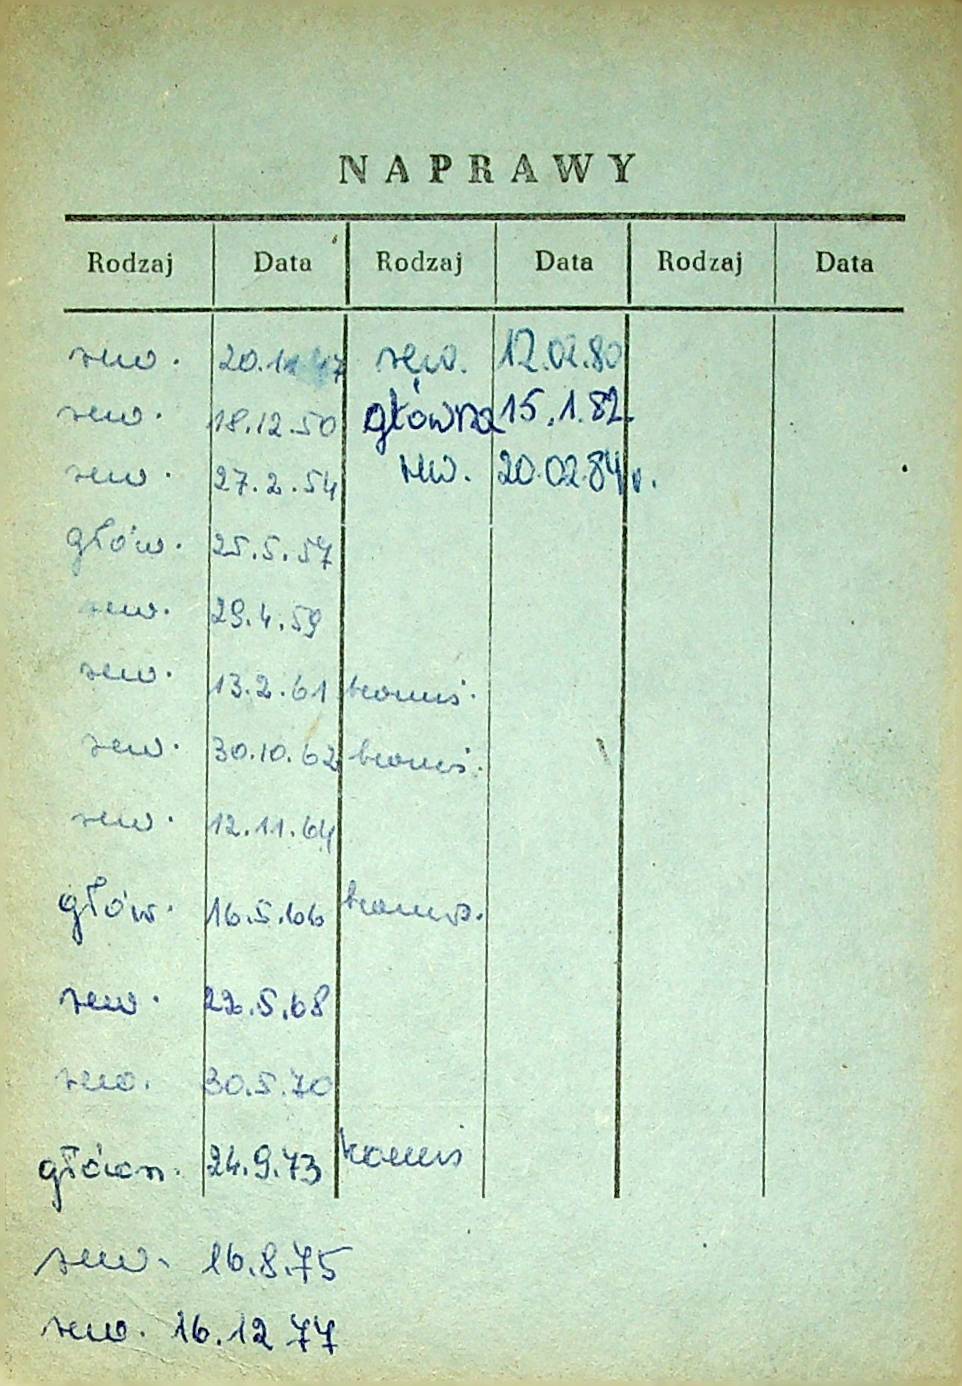 NAPRAWY
Rodzaj Data Rodzaj Data Rodzaj Data
rew. 20.11 47 rew. 12.02.80
rew. 18.12.50 główna 15.1.82.
rew. 27.2.54 rew. 20.02.84r.
głów. 25.5.57
rew. 29.4.59
rew. 13.2.61 komis.
rew. 30.10.62 komis.
rew. 12.11.64
głów. 16.5.66 komis.
rew. 22.5.68
rew. 30.5.70
główn. 24.9.73 komis
rew. 16.8.75
rew. 16.12 77